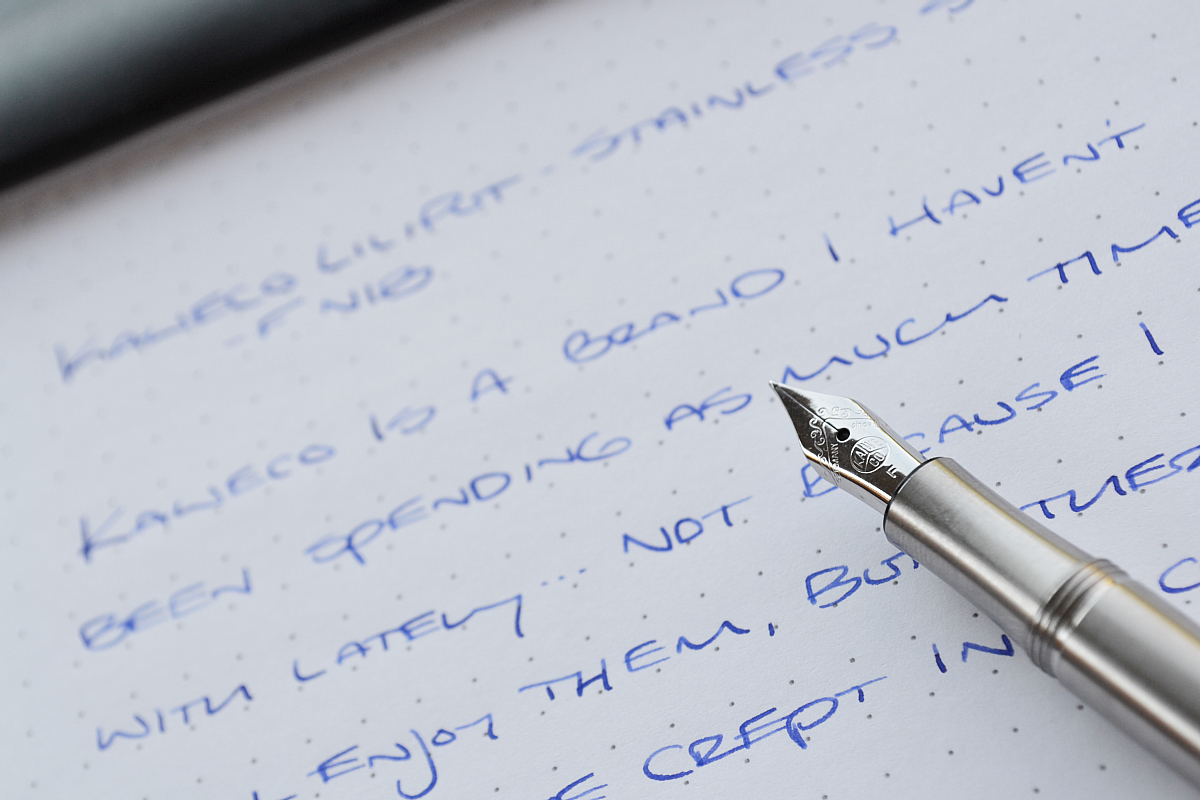 KAWECO LILIPUT - STAINLESS
- F NIB
KAWECO IS A BRAND I HAVEN'T
BEEN SPENDING AS MUCH TIME
WITH LATELY... NOT BECAUSE I
ENJOY THEM, BUT
CREPT IN
KAWECO
GERMANY